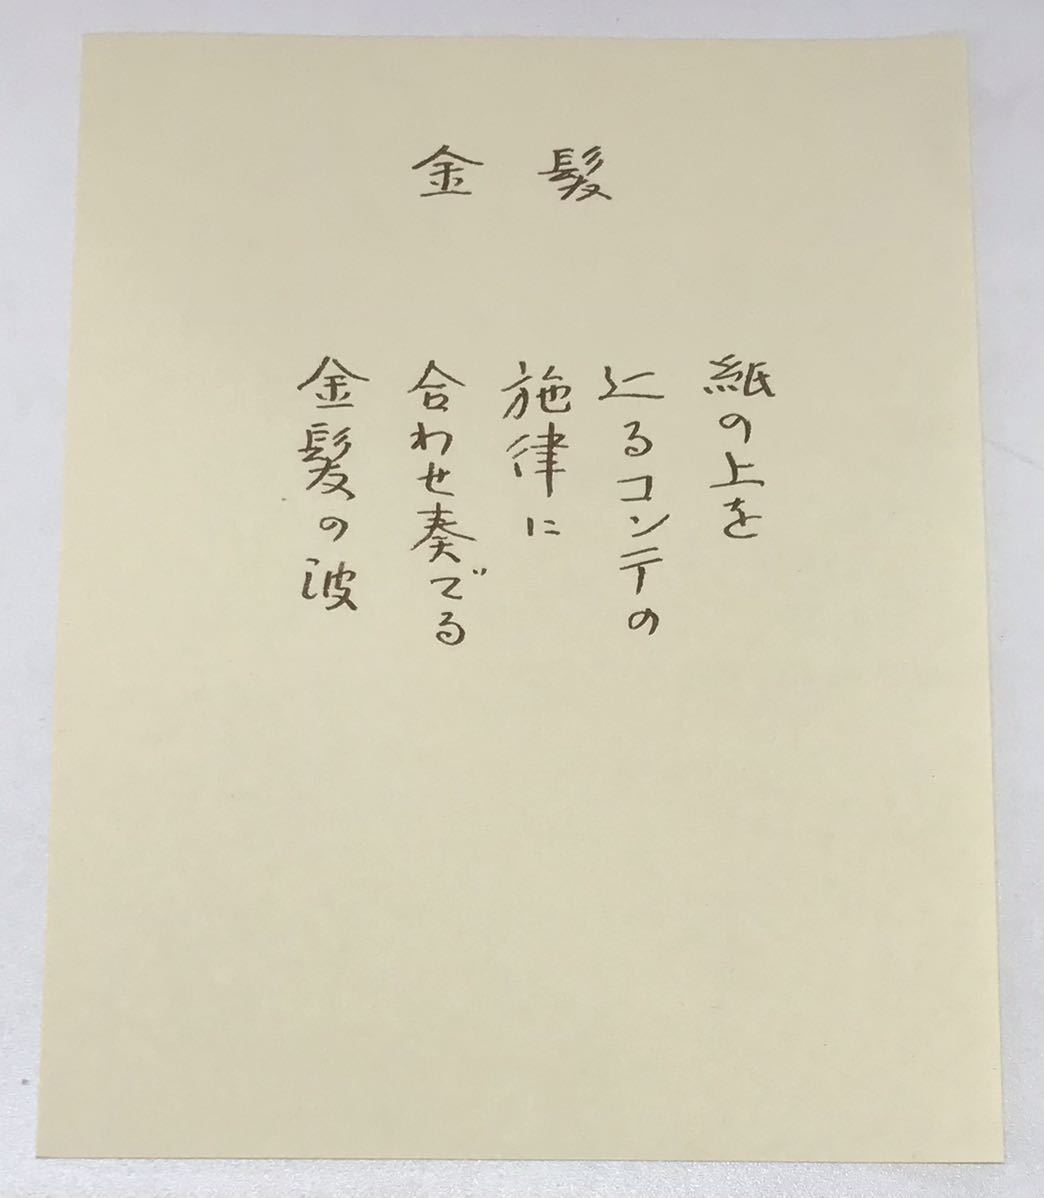 金髪
紙の上を
辷るコンテの
施律に
合わせ奏でる
金髪の波